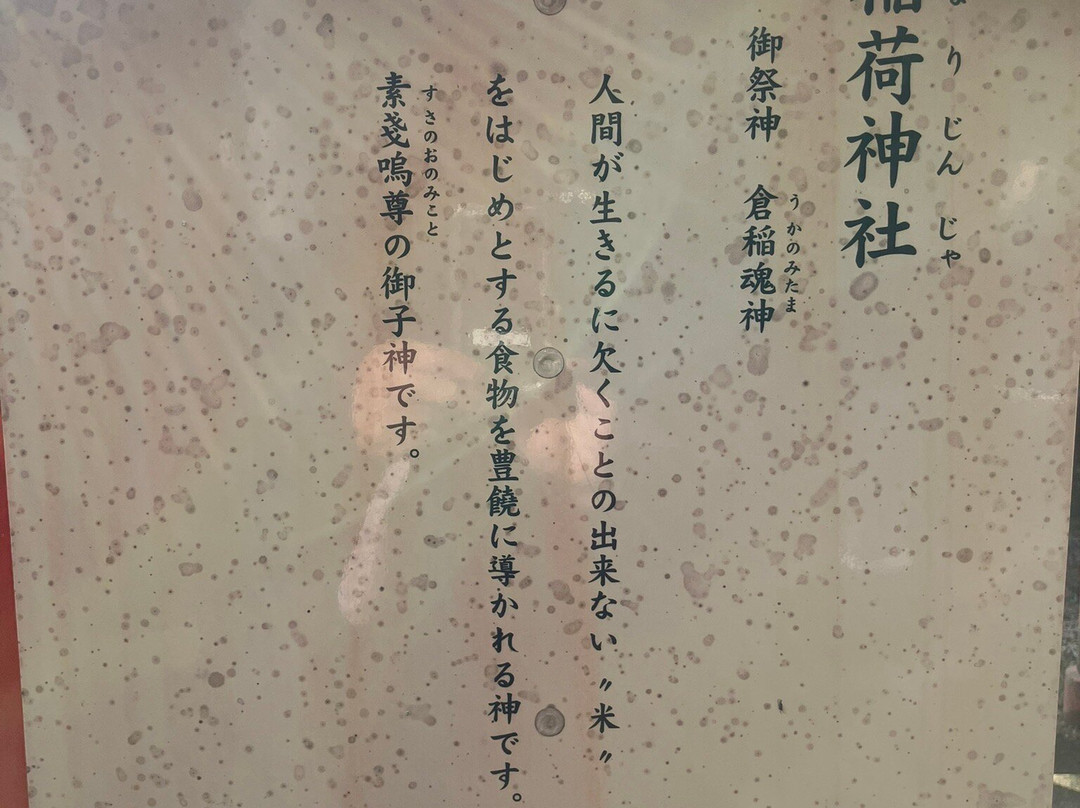 稲荷神社
りじんじゃ
御祭神　倉稲魂神
うかのみたま
人間が生きるに欠くことの出来ない〃米〃
をはじめとする食物を豊饒に導かれる神です。
素戔嗚尊の御子神です。
すさのおのみこと